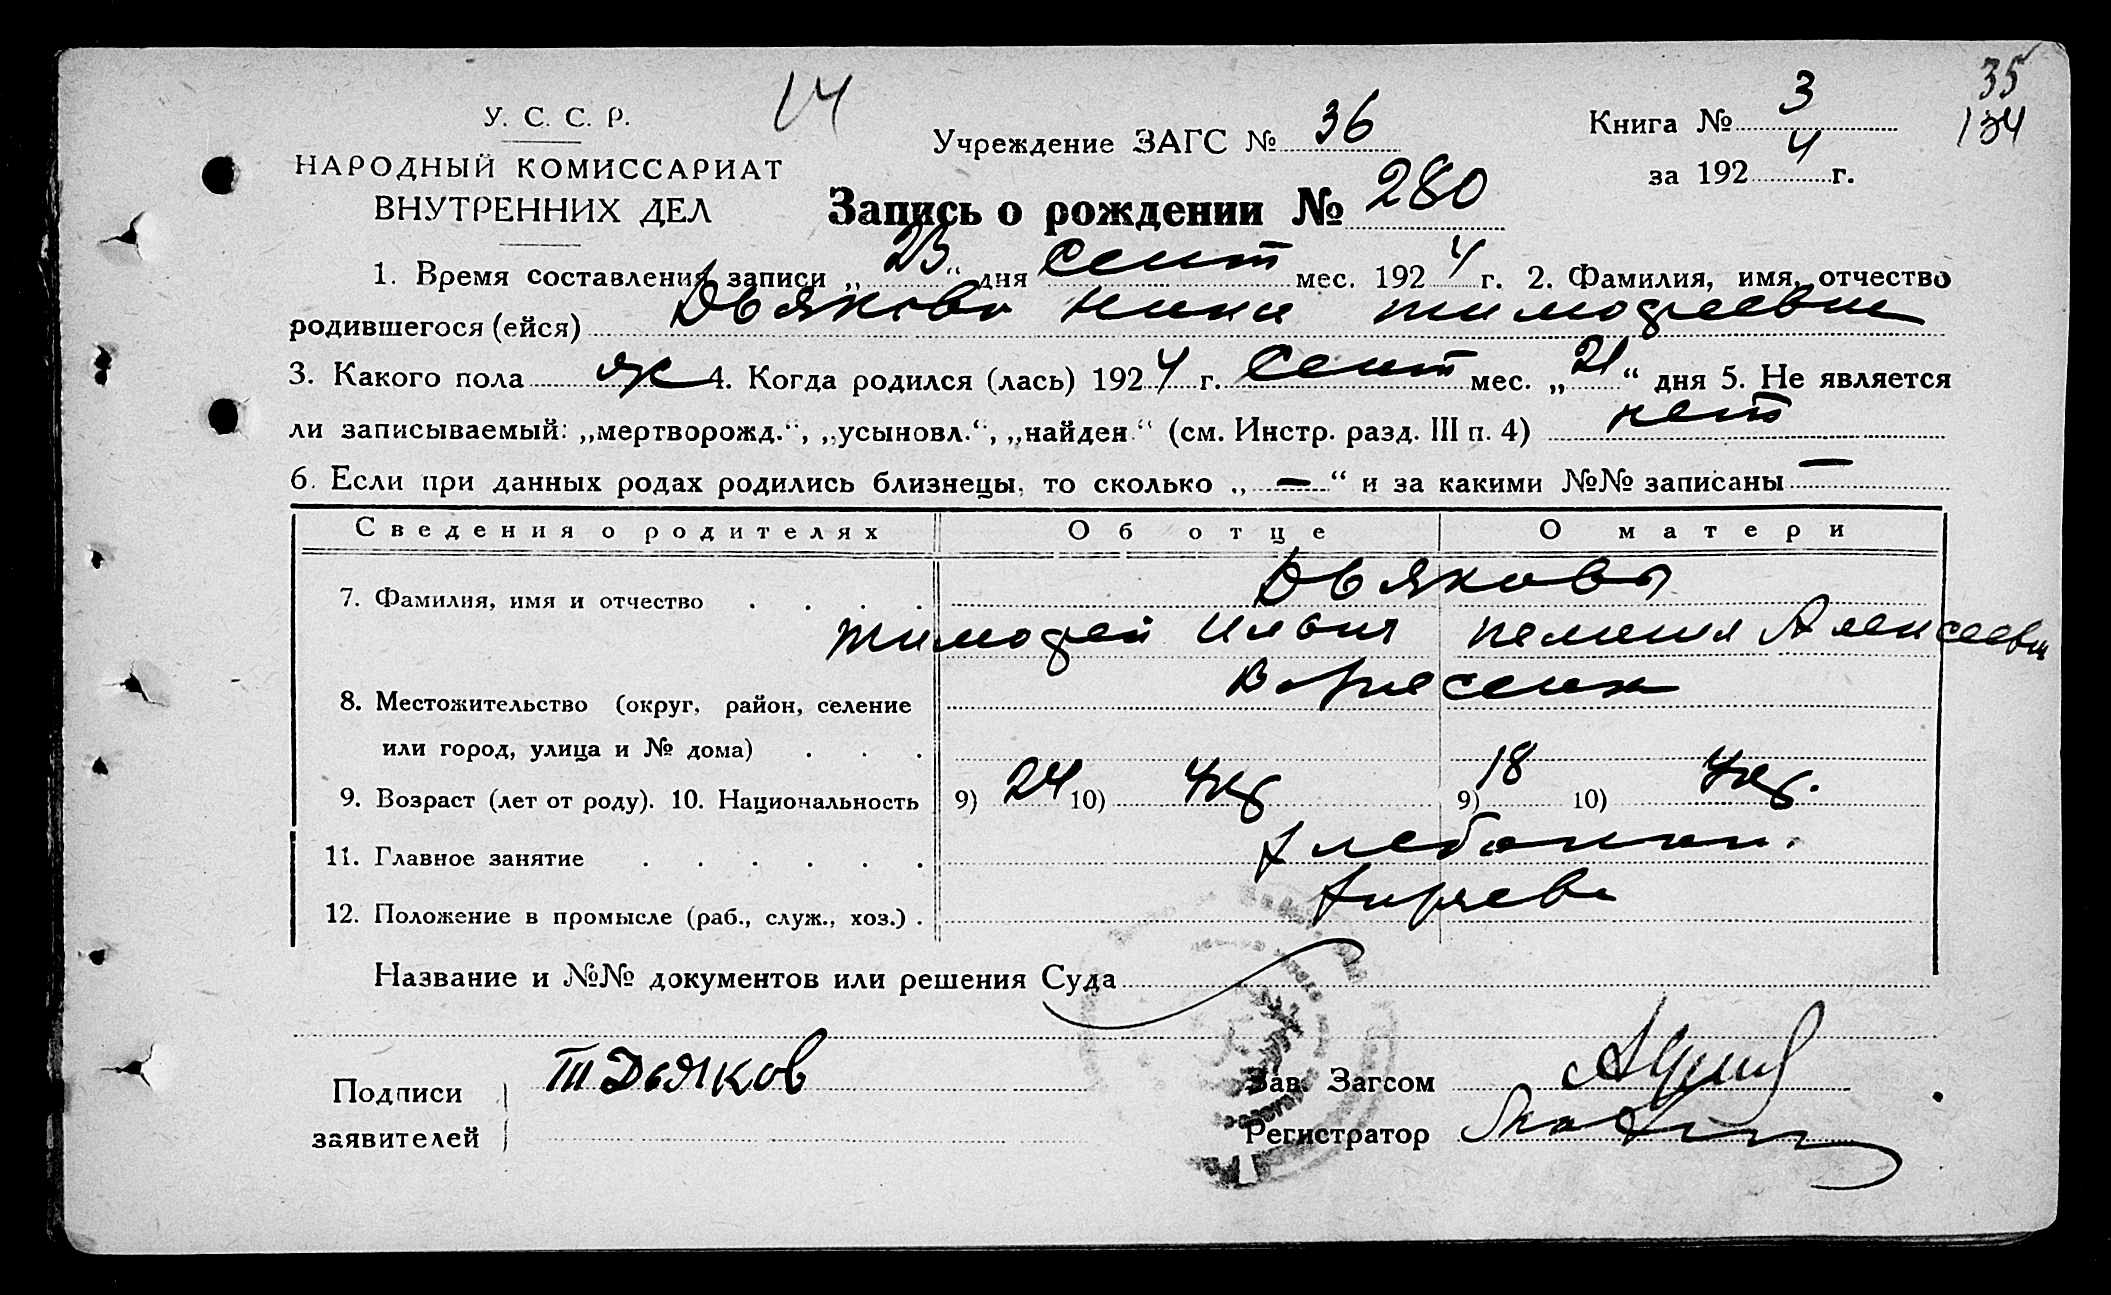 14
35
134
У. С. С. Р.
НАРОДНЫЙ КОМИССАРИАТ
ВНУТРЕННИХ ДЕЛ
Учреждение ЗАГС № 36
Книга № 3
за 1924 г.
Запись о рождении № 280
1. Время составления записи „23“ дня Сент мес. 1924 г. 2. Фамилия, имя, отчество
родившегося (ейся) Дьякова Нина Тимофеевна
3. Какого пола ж 4. Когда родился (лась) 1924 г. Сент мес. „21“ дня 5. Не является
ли записываемый: „мертворожд.“, „усыновл.“, „найден“ (см. Инстр. разд. III п. 4) нет
6. Если при данных родах родились близнецы, то сколько „—“ и за какими №№ записаны —
Сведения о родителях Об отце О матери
7. Фамилия, имя и отчество Дьяковы
Тимофей Алексеевна
8. Местожительство (округ, район, селение
или город, улица и № дома)
9. Возраст (лет от роду). 10. Национальность 9) 24 10) Укр 9) 18 10) Укр.
11. Главное занятие
12. Положение в промысле (раб., служ., хоз.)
Название и №№ документов или решения Суда
Подписи
заявителей
Т Дьяков
Зав. Загсом
Регистратор